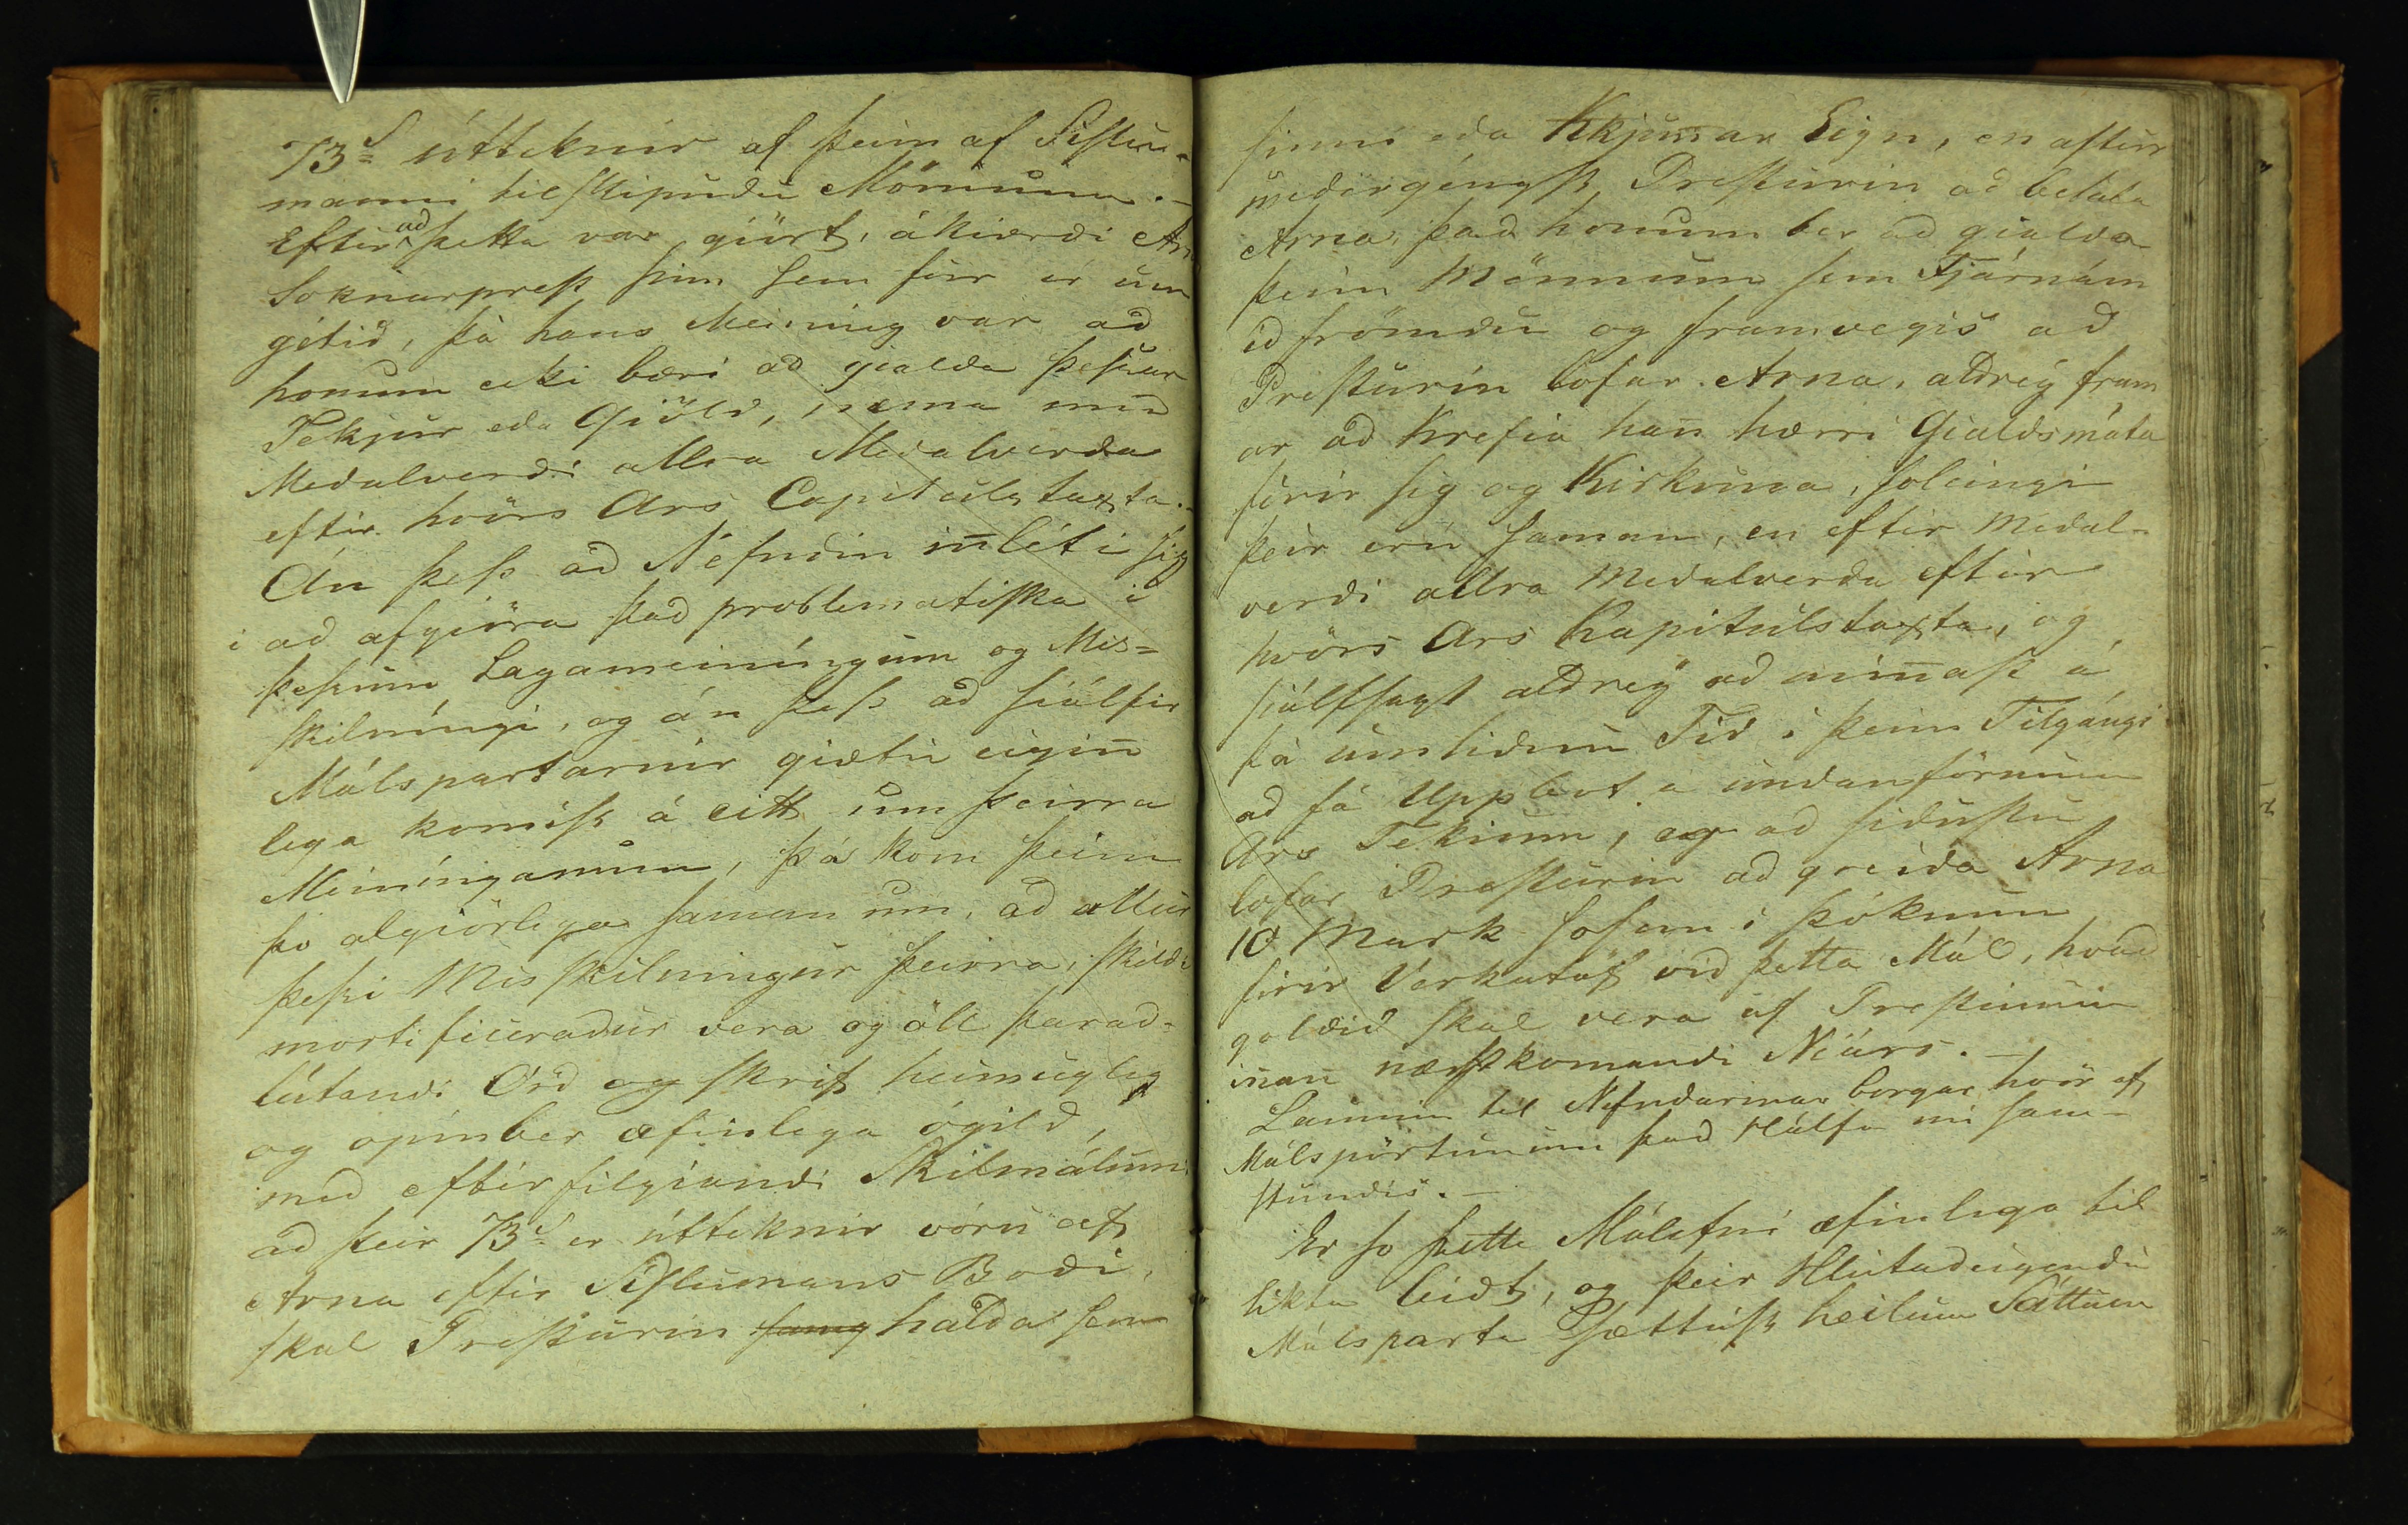 73s útteknir af þeim af Sislu-
manni tilskipuðu Mönnum.-
Eftir að þetta var giört, ákiærði Arni
Soknarprest sinn sem firr er um
gétið, þá hans Meining var að
honum eki bæri að gialda þessar
Tekjur eða Giöld, nema með
Meðalverði allra Meðalverða
eftir hvörs Ars Capitulstaxta.
Án þess að Nefndin inleti sig
i að afgiöra það problematiska i
þessum Lagameiníngum og Mis=
skilníngi, og án þess að siálfir
Málspartarnir giætu eigin
lega komist á eitt um þeirra
Meiníngamun, þá kom þeim
þo algiörlega saman um, að allur
þessi Misskilningur þeirra, skildi
mortificeraður vera og öll þarað-
lútandi Orð og skrif heimugleg
og opinber æfinlega ógild,
með eftirfilgiandi Skilmálum:
að þeir 73s er útteknir vóru af
Arna eftir Sislumans Boði,
skal Presturin halda sem
sinni eða Kkjunnar Eign, en aftur
undirgengst Presturin að betala
Arna, það honum ber að gialda
þeim Mönnum sem Fjárnám
ið frömdu og framvegis að
Presturin lofar Arna, aldrei fram
ar að krefia han hærri Gialdsmáta
firir sig og Kirkiuna, soleingi
þeir eru saman, en eftir Meðal-
verði allra Meðalverða eftir
hvörs Ars Kapitulstaxta, og
siálfsagt aldrei að minnast á
þá umliðnu Tíð i þeim Tilgángi
að fá Uppbot á undanförnum
Ars Tekium, og að siðustu
lofar Presturin að greiða Arna
10 Mark sosem i þóknun
firir Verkatöf við þetta Mál, hvað
goldið skal vera af Prestinum
innan næstkomandi Niárs.-
Launin til Nefndarinnar borgar hvör af
Málspörtunum það Hálfa nú sam-
stundis.-
Er so þetta Málefni æfinlega til
likta leidt, og þeir Hlutaðeigendu
Málsparta sættust heilum Sáttum